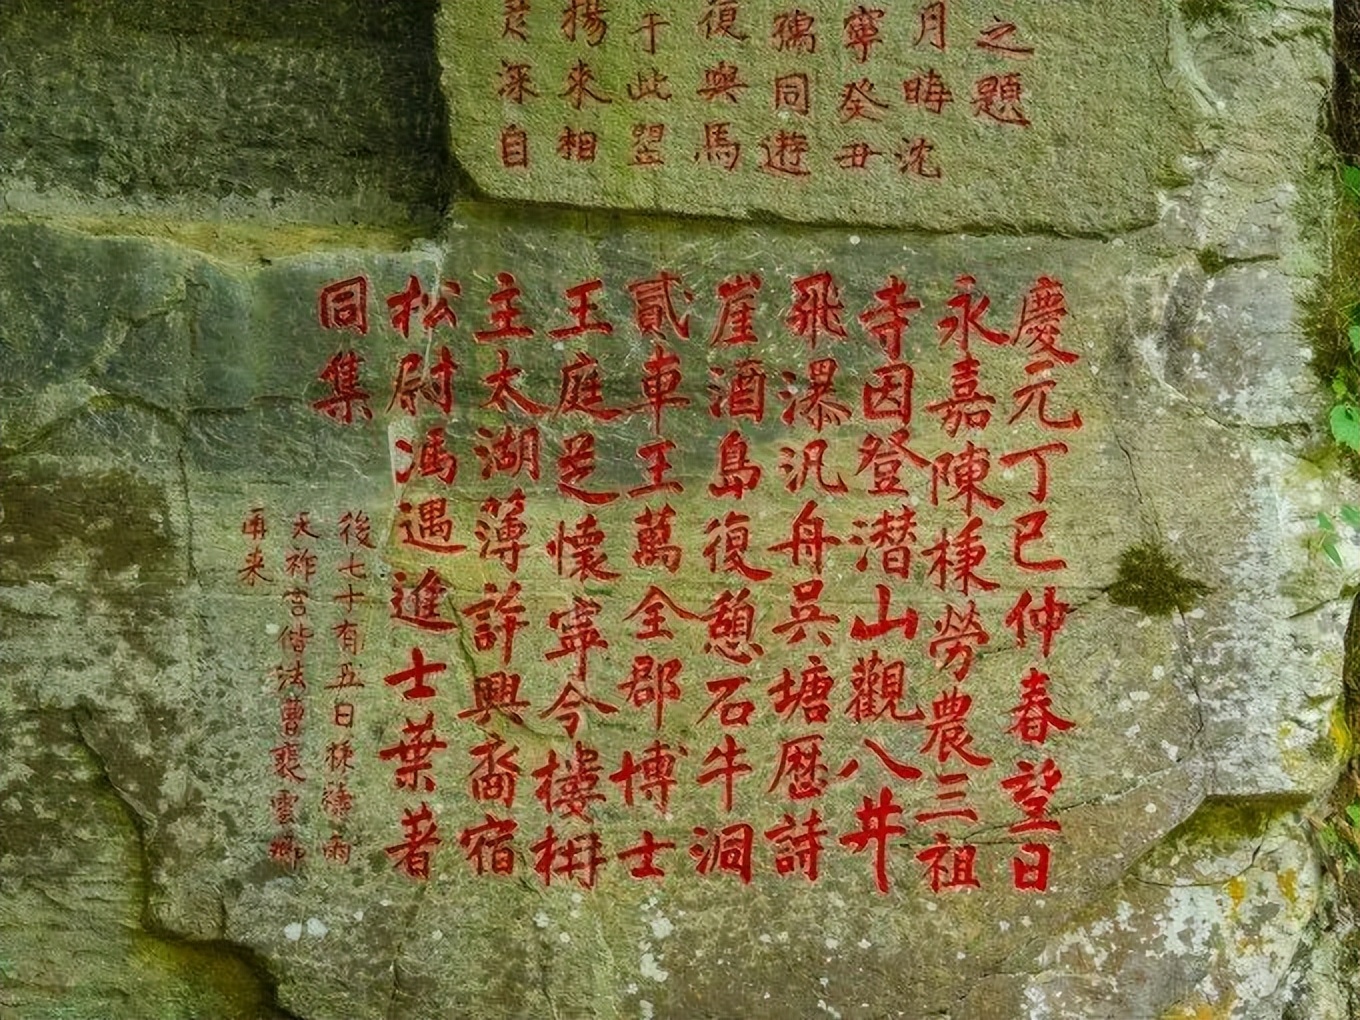 之題
月晦沈
寧癸丑
同遊
復與馬
于此翌
揚來相
深自
慶元丁巳仲春望日
永嘉陳楝勞農三祖
寺因登潛山觀八井
飛瀑汎舟吳塘歷詩
崖酒島復憩石牛洞
貳車王萬全郡博士
王庭芝懷寧令樓枏
主太湖薄許興裔宿
松尉馮遇進士葉著
同集
後七十有五日楝禱雨
天祚宮偕法曹裴雲卿
再来